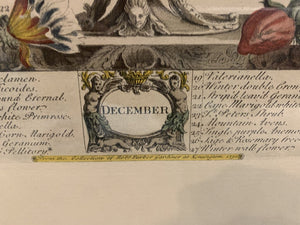 22
lamen.
icoides.
and Eternal
s flower
hite Primrose
Corn Marigold
Geranum
Pellitory
DECEMBER
19 Valerianella.
20 Winter double Crow
21 Strip'd leav'd Geran
22 Cape Marigold white
23 S.t Peters Shrub
24 Mountain Avens.
25 Single purples Anemo
26 Sage & Rosemary tree
27 Winter wall flower
From the Collection of Rob.t Furber Gardiner at Kensington. 1730